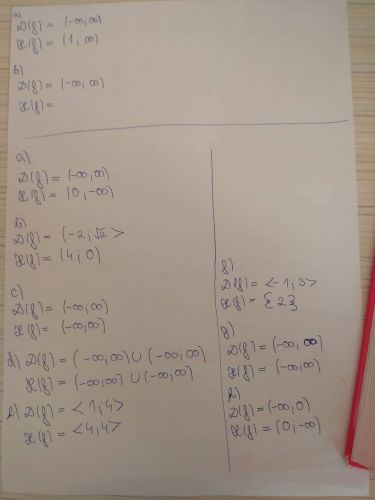 a)
D(f) = (-∞,∞)
H(f) = (1, ∞)
b)
D(f) = (-∞,∞)
H(f) =
a)
D(f) = (-∞,∞)
H(f) = (0,-∞)
b)
D(f) = (-2;√2>
H(f) = (4;0)
c)
D(f) = (-∞,∞)
H(f) = (-∞,∞)
d) D(f) = (-∞,∞) ∪ (-∞,∞)
H(f) = (-∞,∞) ∪ (-∞,∞)
e) D(f) = <1;4>
H(f) = <4;4>
f)
D(f) = <-1;3>
H(f) = {2}
g)
D(f) = (-∞,∞)
H(f) = (-∞,∞)
h)
D(f) = (-∞,0)
H(f) = (0,-∞)